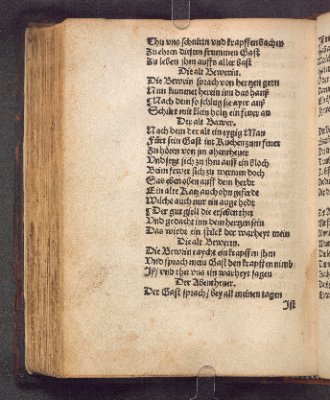 Thu uns schnitten und krapffen bachen
Zu ehren diesem frummen Gast
Zu lewin jhm auffs aller bast
Die alt Bewerin.
Die Bewrin sprach von hertzen gern
Nun kummet herein inn das hauß
Nach dem so schlug sie ayer auß
Schürt mit klein holtz ein fewer an
Der alt Bawer.
Nach dem der alt eineygig Man
Fürt sein Gast int Kuchen zum fewer
Zu hören von jm abentheuer
Und setzt sich zu jhm auff ein bloch
Beim fewer sich zu wermen doch
Saß eben oben auff dem herdt
Ein alte Katz auch ohn geferdt
Welche auch nur ein auge hedt
Der gut gsell die ersehen thet
Und gedacht inn dem hertzen sein
Das wirdt ein stück der warheyt mein
Die alt Bewerin.
Die Bewrin raycht ein krapffen jhm
Und sprach mein Gast den krapffen nimb
Iß / und thu uns ein warheyt sagen
Der Abentheurer.
Der Gast sprach / bey all meinen tagen
Ist